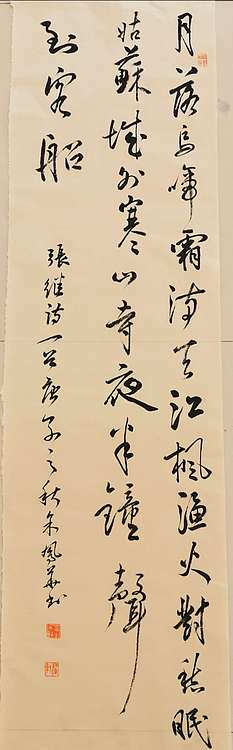 月落烏啼霜滿天江楓漁火對愁眠
姑蘇城外寒山寺夜半鐘聲
到客船
張繼詩一首庚子之秋朱鳳華書